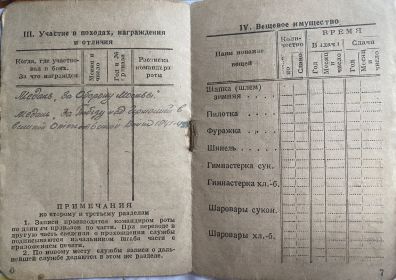 III. Участие в походах, награждения
и отличия
Когда, где участво-
вал в боях.
За что награжден
Месяц и число
Год и № приказа
Расписка
командира
роты
Медаль „За Оборону Москвы“
Медаль „За Победу над Германией в
Великой Отечественной войне 1941-1945
ПРИМЕЧАНИЯ
ко второму и третьему разделам
1. Записи производятся командиром роты
по данным приказов по части. При переводе в
другую часть сведения о прохождении службы
подписываются начальником штаба части с
приложением печати.
2. По новому месту службы записи о даль-
нейшей службе делаются в этом же разделе.
6
IV. Вещевое имущество
Наименование
вещей
Коли-
чество
Число
ВРЕМЯ
В дачи
Сдачи
Год
Месяц и число
Год
Месяц и число
Шапка (шлем)
зимняя . . .
Пилотка . . .
Фуражка . . .
Шинель . . .
Гимнастерка сук.
Гимнастерка хл.-б.
Шаровары сукон.
Шаровары хл.-б.
7